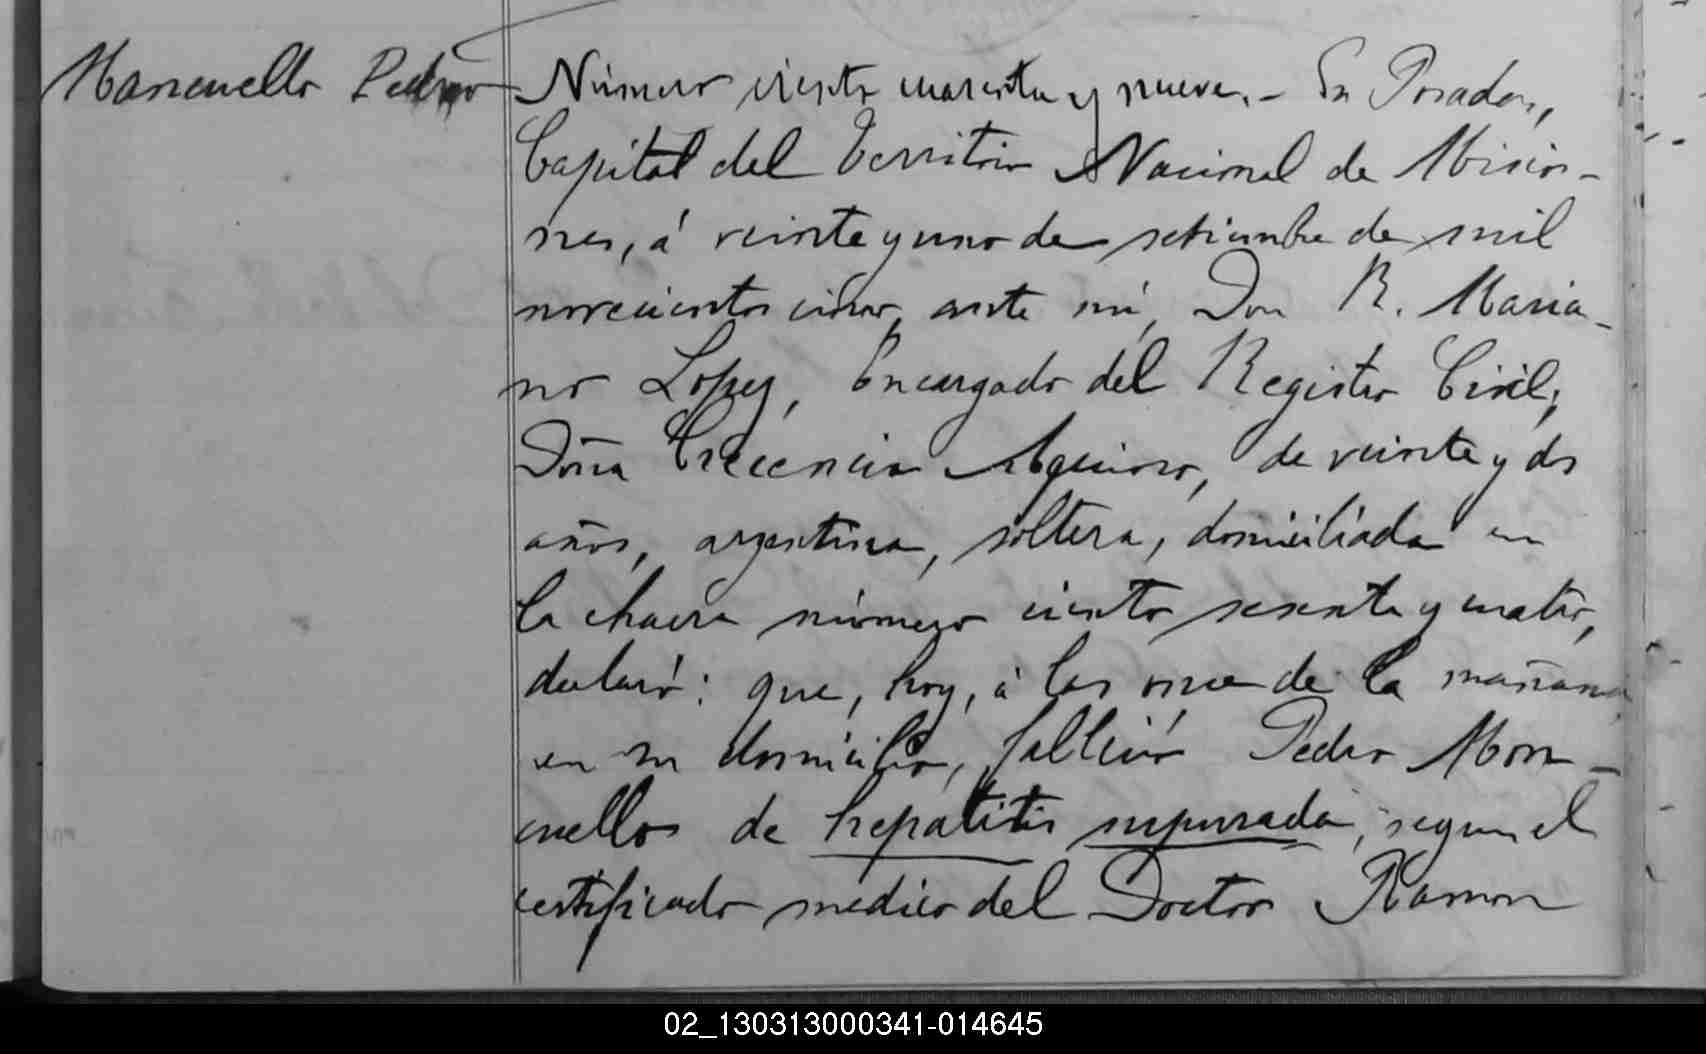 Mancuello Pedro
Número ciento cuarenta y nueve.- En Posadas,
Capital del Territorio Nacional de Misio-
nes, á veinte y uno de setiembre de mil
novecientos cinco, ante mí, Don R. Maria-
no Lopez, Encargado del Registro Civil,
Doña Crecencia Aquino, de veinte y dos
años, argentina, soltera, domiciliada en
la chacra número ciento sesenta y cuatro,
declaró: que, hoy, á las once de la mañana
en su domicilio, falleció Pedro Man-
cuello de hepatitis supurada, segun el
certificado medico del Doctor Ramon
02_130313000341-014645